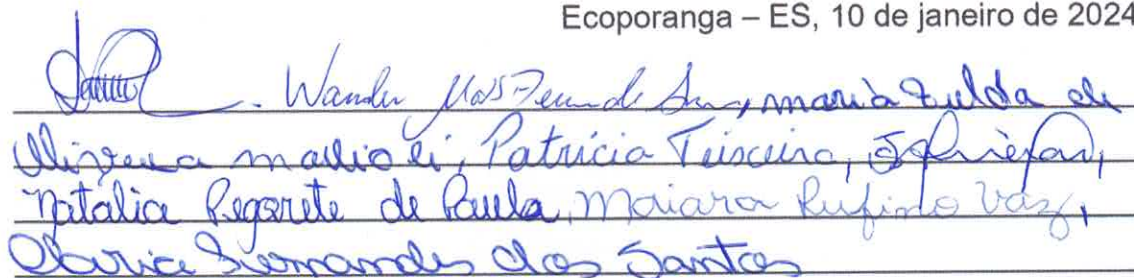 Ecoporanga – ES, 10 de janeiro de 2024
Wander, maria Zulda de
Oliveira mallioli, Patrícia Teixeira,
Natália Pegorete de Paula, Maiara Rufino Vaz,
Clarice Fernandes dos Santos